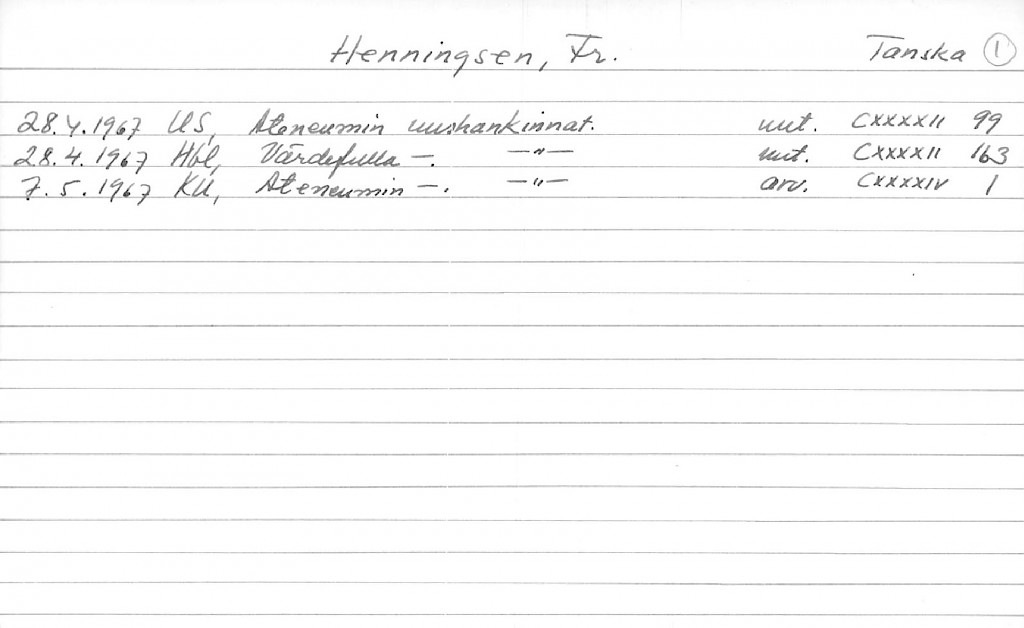 Henningsen, Fr. Tanska 1
28.4.1967 US, Ateneumin uushankinnat. uut. CXXXXII 99
28.4.1967 Hbl, Värdefulla —. —"— uut. CXXXXII 163
7.5.1967 KU, Ateneumin —. —"— arv. CXXXXIV 1